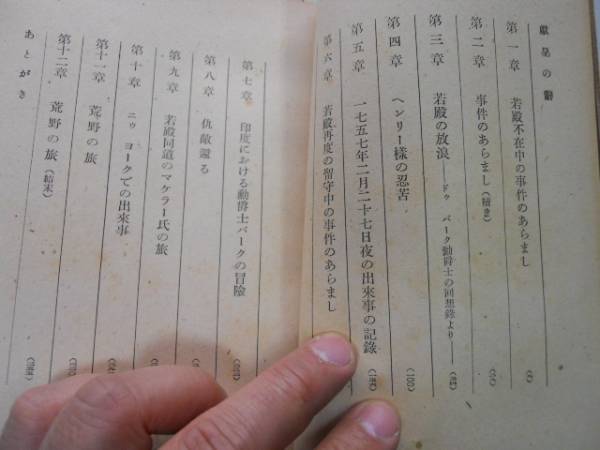 献呈の辞
第一章 若殿不在中の事件のあらまし
第二章 事件のあらまし(續き)
第三章 若殿の放浪——ドゥ バーク勳爵士の回想錄より——
第四章 ヘンリー樣の忍苦 (100)
第五章 一七五七年二月二十七日夜の出來事の記錄
第六章 若殿再度の留守中の事件のあらまし
第七章 印度における勳爵士バークの冒險
第八章 仇敵還る
第九章 若殿同道のマケラー氏の旅
第十章 ニゥ ヨークでの出來事
第十一章 荒野の旅
第十二章 荒野の旅(結末)
あとがき